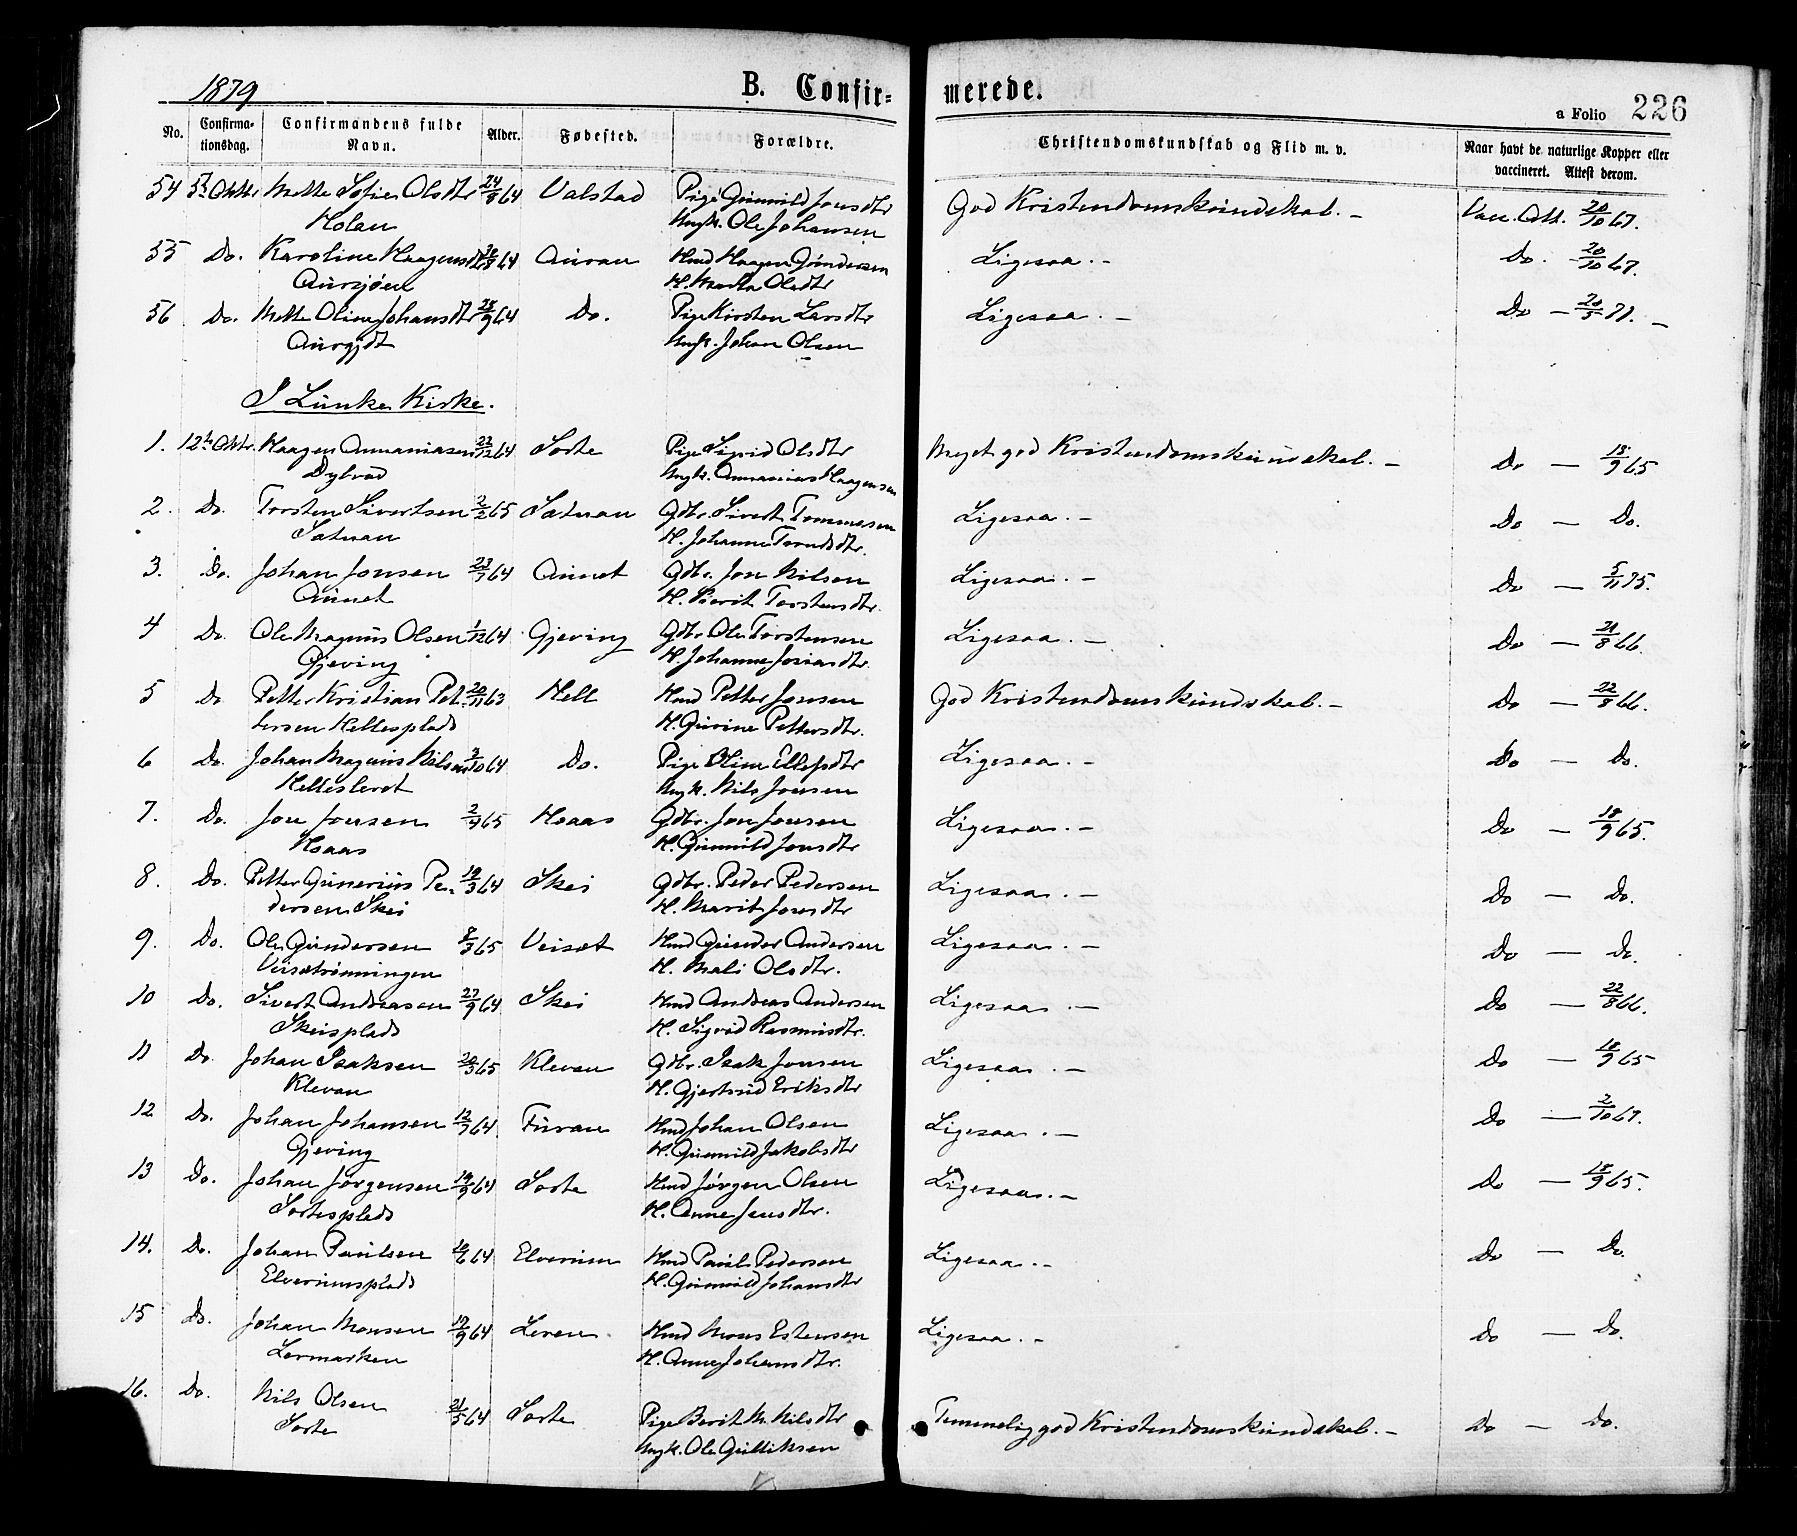 1879
B. Confir=
merede.
a Folio 226
No.
Confirma-
tionsdag.
Confirmandens fulde
Navn.
Alder.
Fødested.
Forældre.
Christendomskundskab og Flid m. v.
Naar havt de naturlige Kopper eller
vaccineret. Attest derom.
54 5te Oktbr Mette Sofie Olsdtr 24/8 64 Valstad Pige Gunnild Jonsdtr God Kristendomskundskab. – Vac. Att. 20/10 67.
Holan Ungk. Ole Johansen
55 Do. Karoline Haagensdtr 64 Auran Hmd Haagen Gundersen Ligesaa. – Do. 20/10 67.
Aursjøen H. Marta Olsdtr
56 Do. Mette Oline Johansdtr 28/9 64 Do. Pige Kirsten Larsdtr Ligesaa. – Do – 20/5 71. –
Ungk. Johan Olsen
I Lånke Kirke.
1. 12te Oktr. Haagen Annaniasen 22/12 64 Sorte Pige Sigrid Olsdtr Meget god Kristendomskundskab. – Do – 18/9 65
Dybvad Ungk. Annanias Haagensen
2. Do. Torsten Sivertsen 2/2 65 Sætnan Gdbr. Sivert Tommesen Ligesaa. – Do – Do.
Sætnan H. Johanne
3. Do. Johan Jonsen 23/7 64 Aunet Gdbr. Jon Nilsen Ligesaa. – Do – 5/11 75.
Aunet H. Berit Torstensdtr.
4 Do. Ole Magnus Olsen 1/12 64 Gjeving Gdbr Ole Torstensen Ligesaa. – Do – 21/8 66.
Gjeving H. Johanne
5 Do Petter Kristian Pet- 20/11 63 Hell Hmd Petter Jonsen God Kristendomskundskab. – Do – 22/8 66.
tersen Hellesplads H. Gurine Pettersdtr.
6 Do. Johan Magnus Nilsen 3/10 64 Do. Pige Oline Ellefsdtr Ligesaa. – Do – Do.
Ungk. Nils Jonsen
7. Do. Jon Jonsen 65 Hoaas Gdbr. Jon Jonsen Ligesaa. – Do – 18/9 65.
Hoaas H. Gunnild Jonsdtr
8. Do. Petter Gunerius Pe- 19/3 64 Skei Gdbr. Peder Pedersen Ligesaa. – Do – Do.
dersen Skei H. Marit Jonsdtr
9. Do. Ole Gundersen 8/3 65 Veiset Hmd Gunder Andersen Ligesaa. – Do – Do.
Veisetrønningen H. Mali Olsdtr.
10 Do. Sivert Andreasen 27/9 64 Skei Hmd Andreas Andersen Ligesaa. – Do – 22/8 66.
Skeisplads H. Sigrid Rasmusdtr.
11 Do. Johan Isaksen 20/3 65 Klevan Gdbr. Isak Jonsen Ligesaa. – Do – 18/9 65
Klevan H. Gjertrud Eriksdtr
12 Do. Johan Johansen 12/7 64 Furan Hmd Johan Olsen Ligesaa. – Do – 2/10 67.
Gjeving H. Gunnild Jakobsdtr
13 Do. Johan Jørgensen 19/9 64 Sorte Hmd Jørgen Olsen Ligesaa. – Do – 18/9 65.
Sortesplads H. Anne Jensdtr.
14. Do. Johan Paulsen 20/6 64 Elverum Hmd Paul Pedersen Ligesaa. – Do – Do.
Elverumsplads H. Gunnild Johansdtr
15 Do. Johan Monsen 19/9 64 Leren Hmd Mons Estensen Ligesaa. – Do – Do.
Lermarken H. Anne Johansdtr.
16. Do. Nils Olsen 21/5 64 Sorte Pige Berit M. Nilsdtr Temmelig god Kristendomskundskab. – Do – Do.
Sorte Ungk. Ole Gulliksen